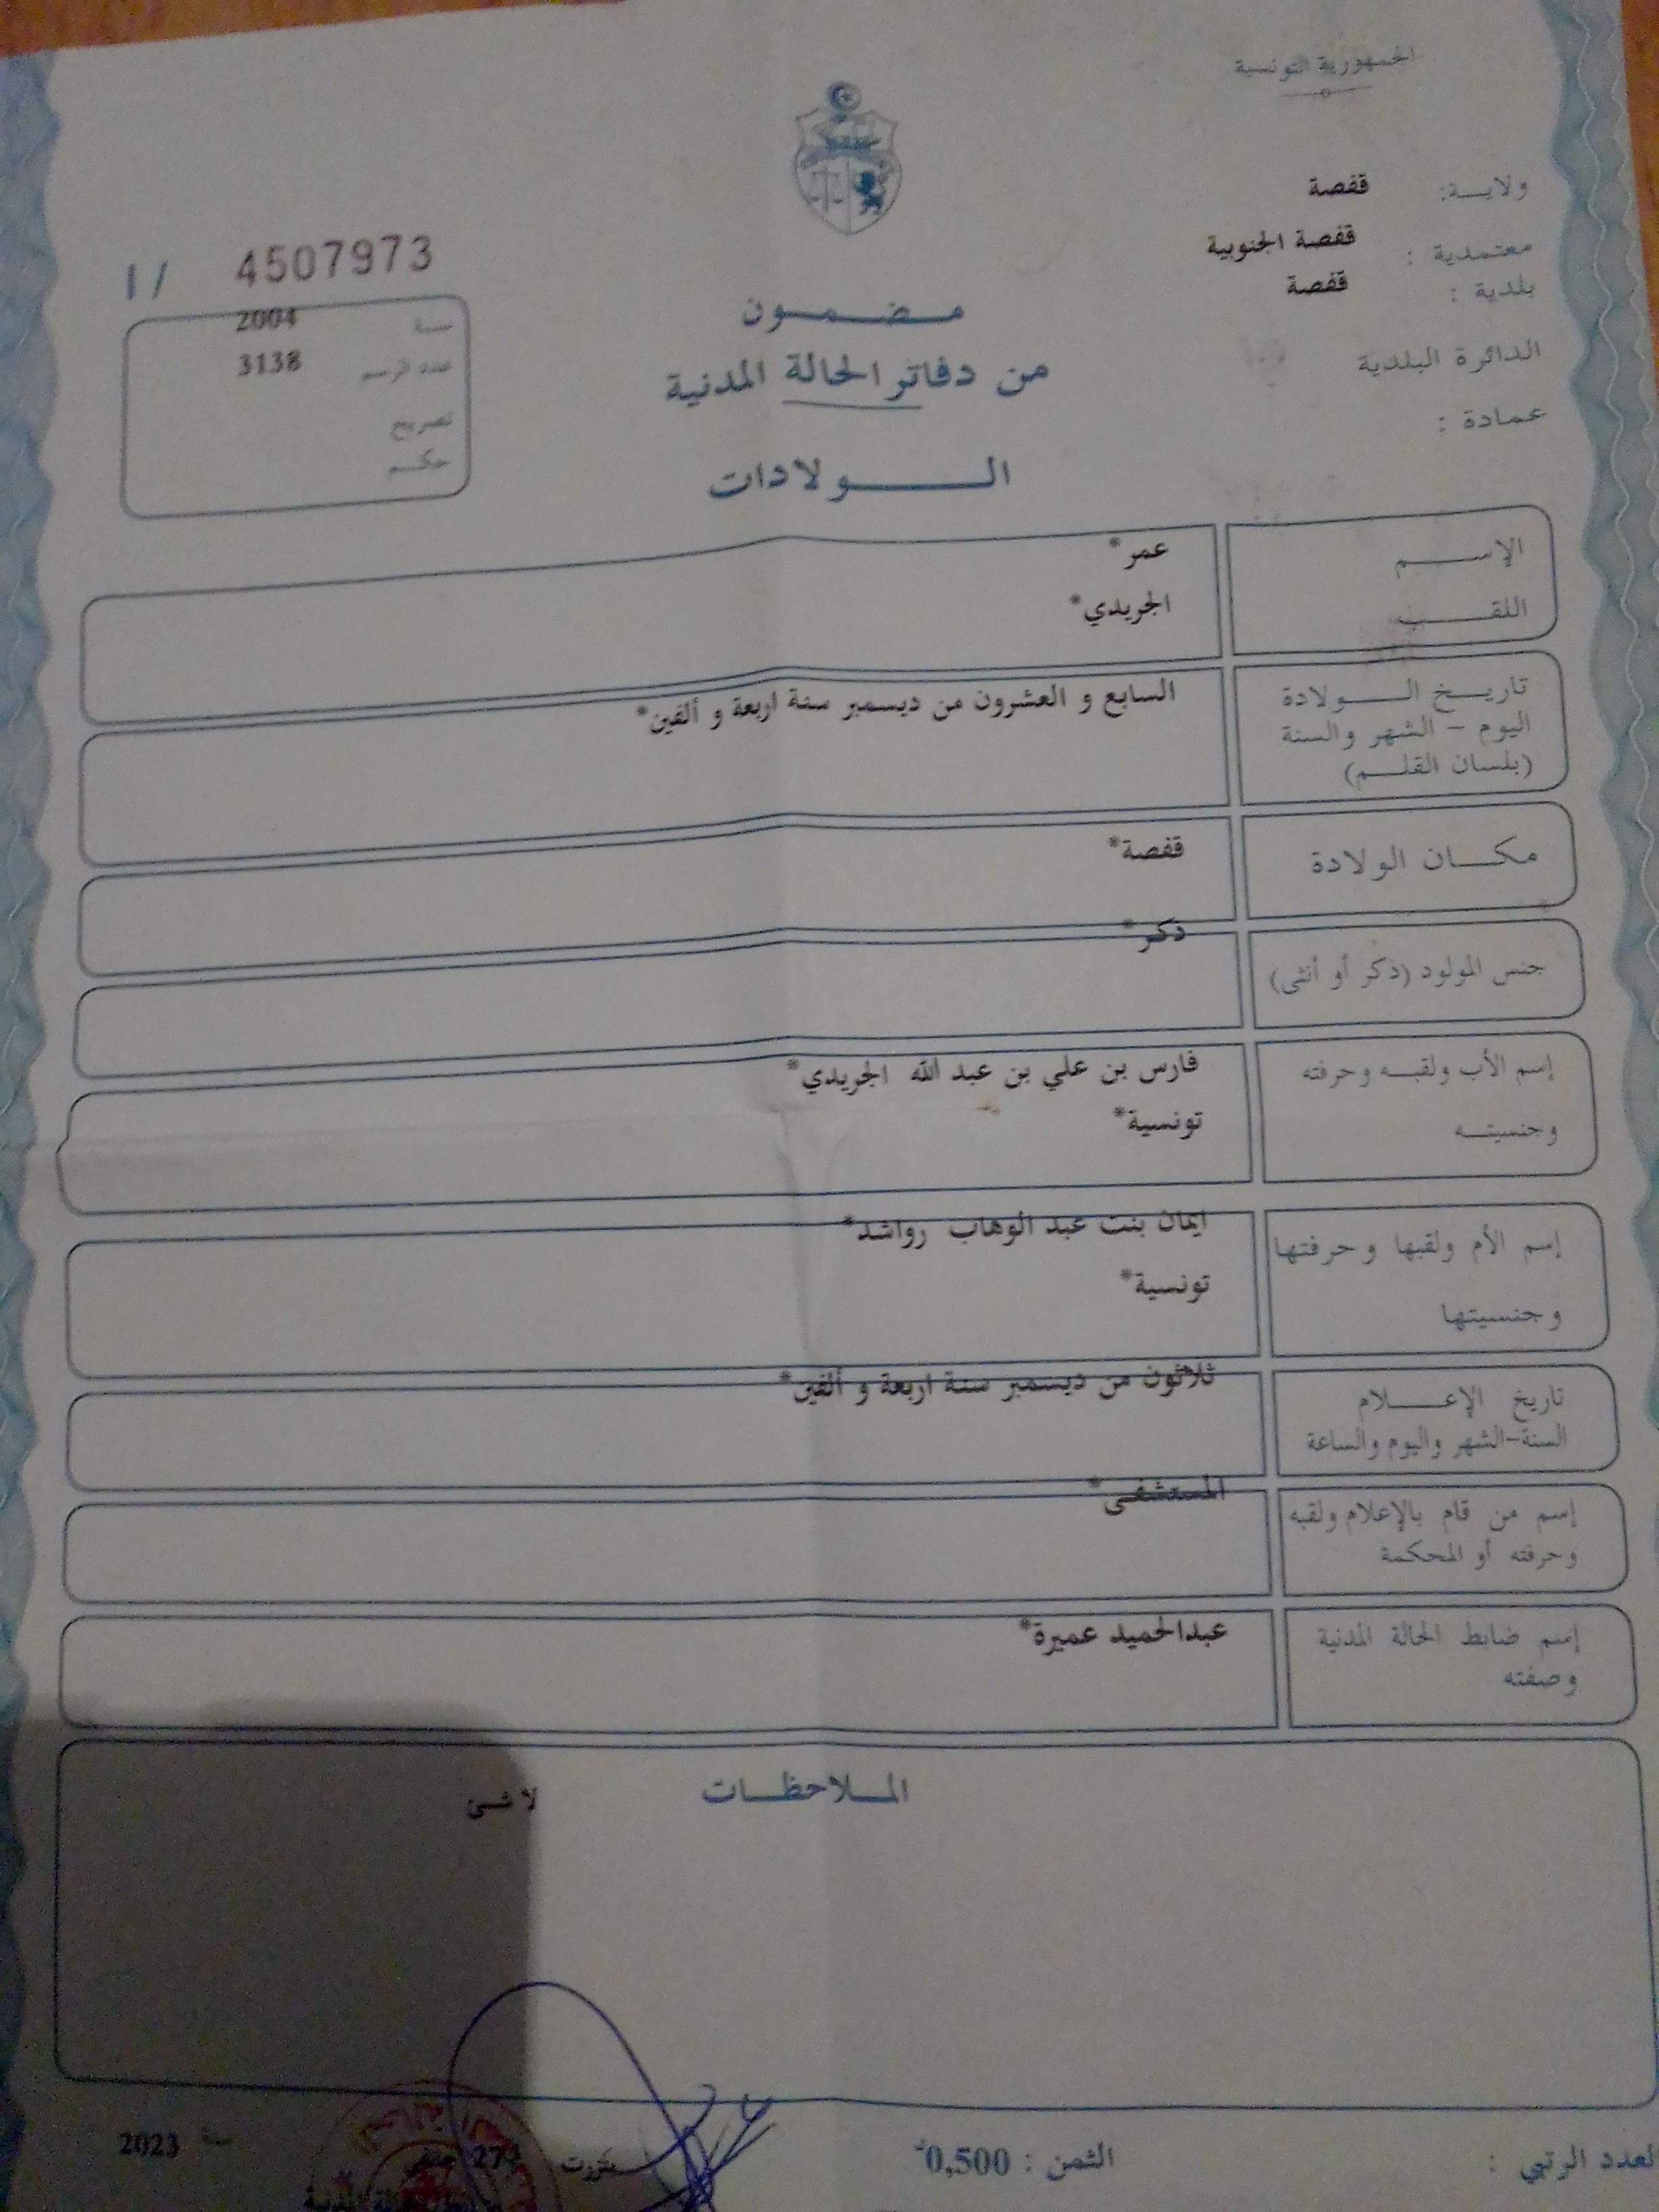 الجمهورية التونسية
ولاية: قفصة
معتمدية : قفصة الجنوبية
بلدية : قفصة
الدائرة البلدية
عمادة :
I / 4507973
سنة 2004
عدد الرسم 3138
تصريح
حكم
مضمون
من دفاتر الحالة المدنية
الولادات
الإسم عمر*
اللقب الجريدي*
تاريخ الولادة السابع و العشرون من ديسمبر سنة اربعة و ألفين*
اليوم - الشهر والسنة
(بلسان القلم)
مكان الولادة قفصة*
جنس المولود (ذكر أو أنثى) ذكر*
إسم الأب ولقبه وحرفته فارس بن علي بن عبد الله الجريدي*
وجنسيته تونسية*
إسم الأم ولقبها وحرفتها ايمان بنت عبد الوهاب رواشد*
وجنسيتها تونسية*
تاريخ الإعلام ثلاثون من ديسمبر سنة اربعة و ألفين*
السنة-الشهر واليوم والساعة
إسم من قام بالإعلام ولقبه المستشفى*
وحرفته أو المحكمة
إسم ضابط الحالة المدنية عبدالحميد عميرة*
وصفته
الملاحظات لا شئ
العدد الرتبي :
الثمن : 0,500
27
سنة 2023